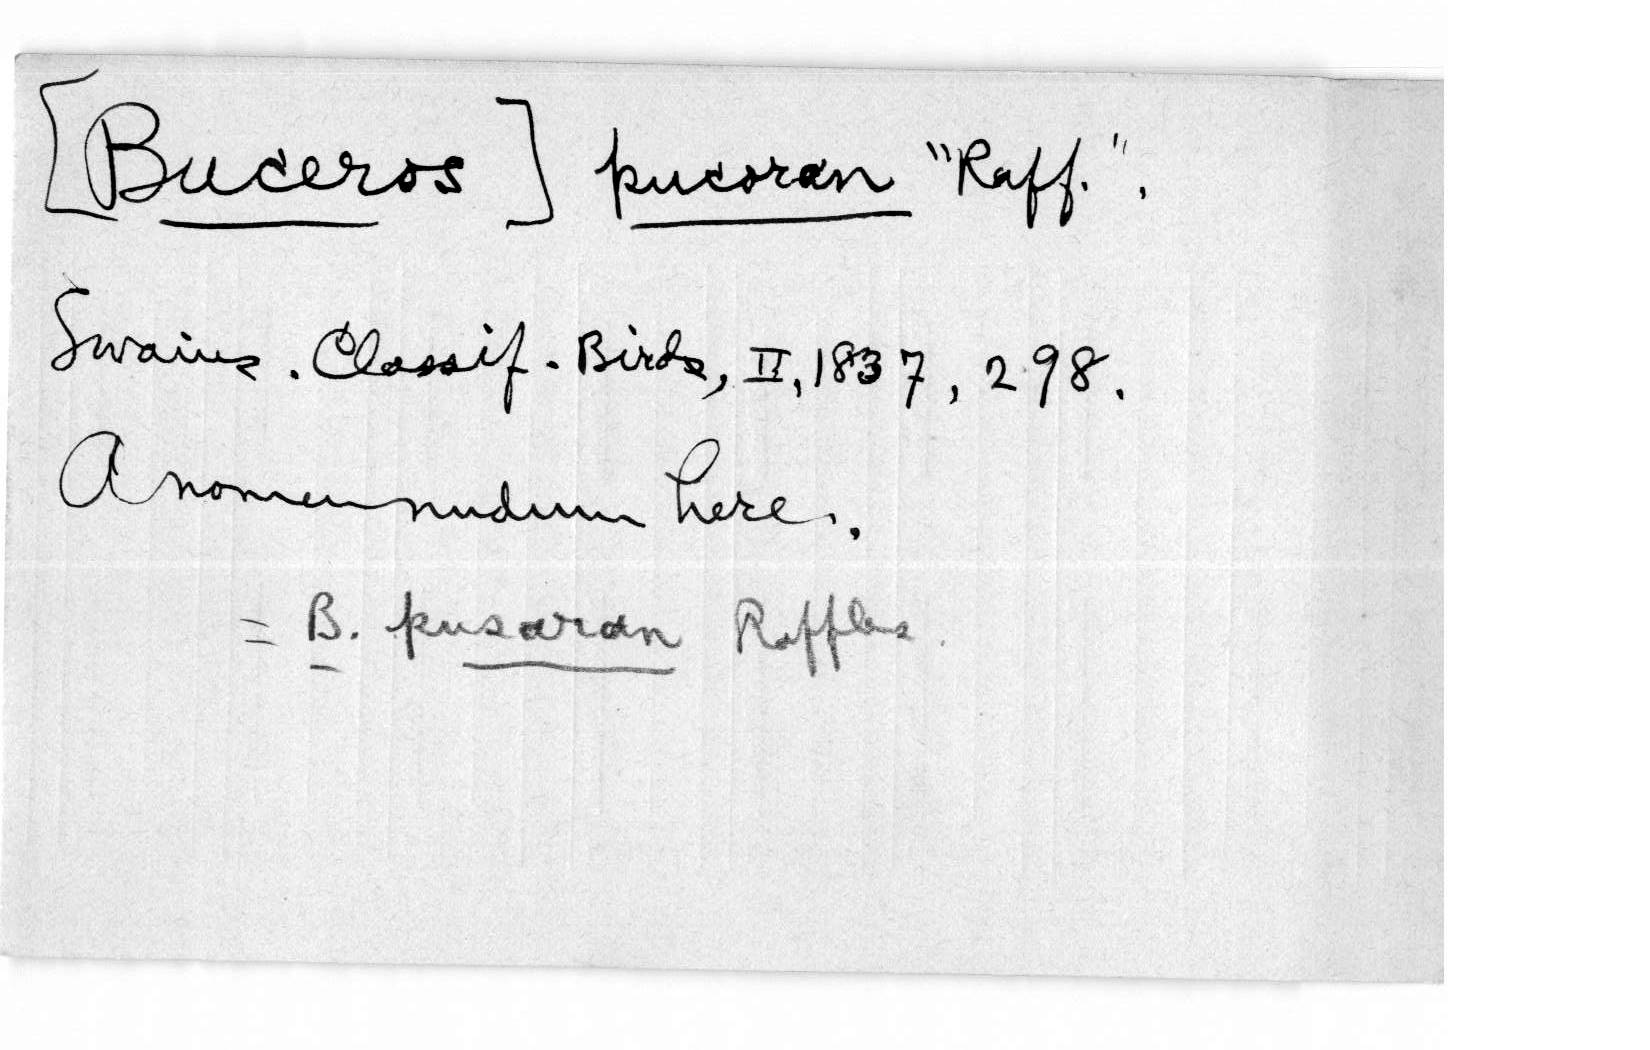 [Buceros] pucoran "Raff.".
Swains. Classif. Birds, II, 1837, 298.
A nomen nudum here.
= B. pusaran Raffles.